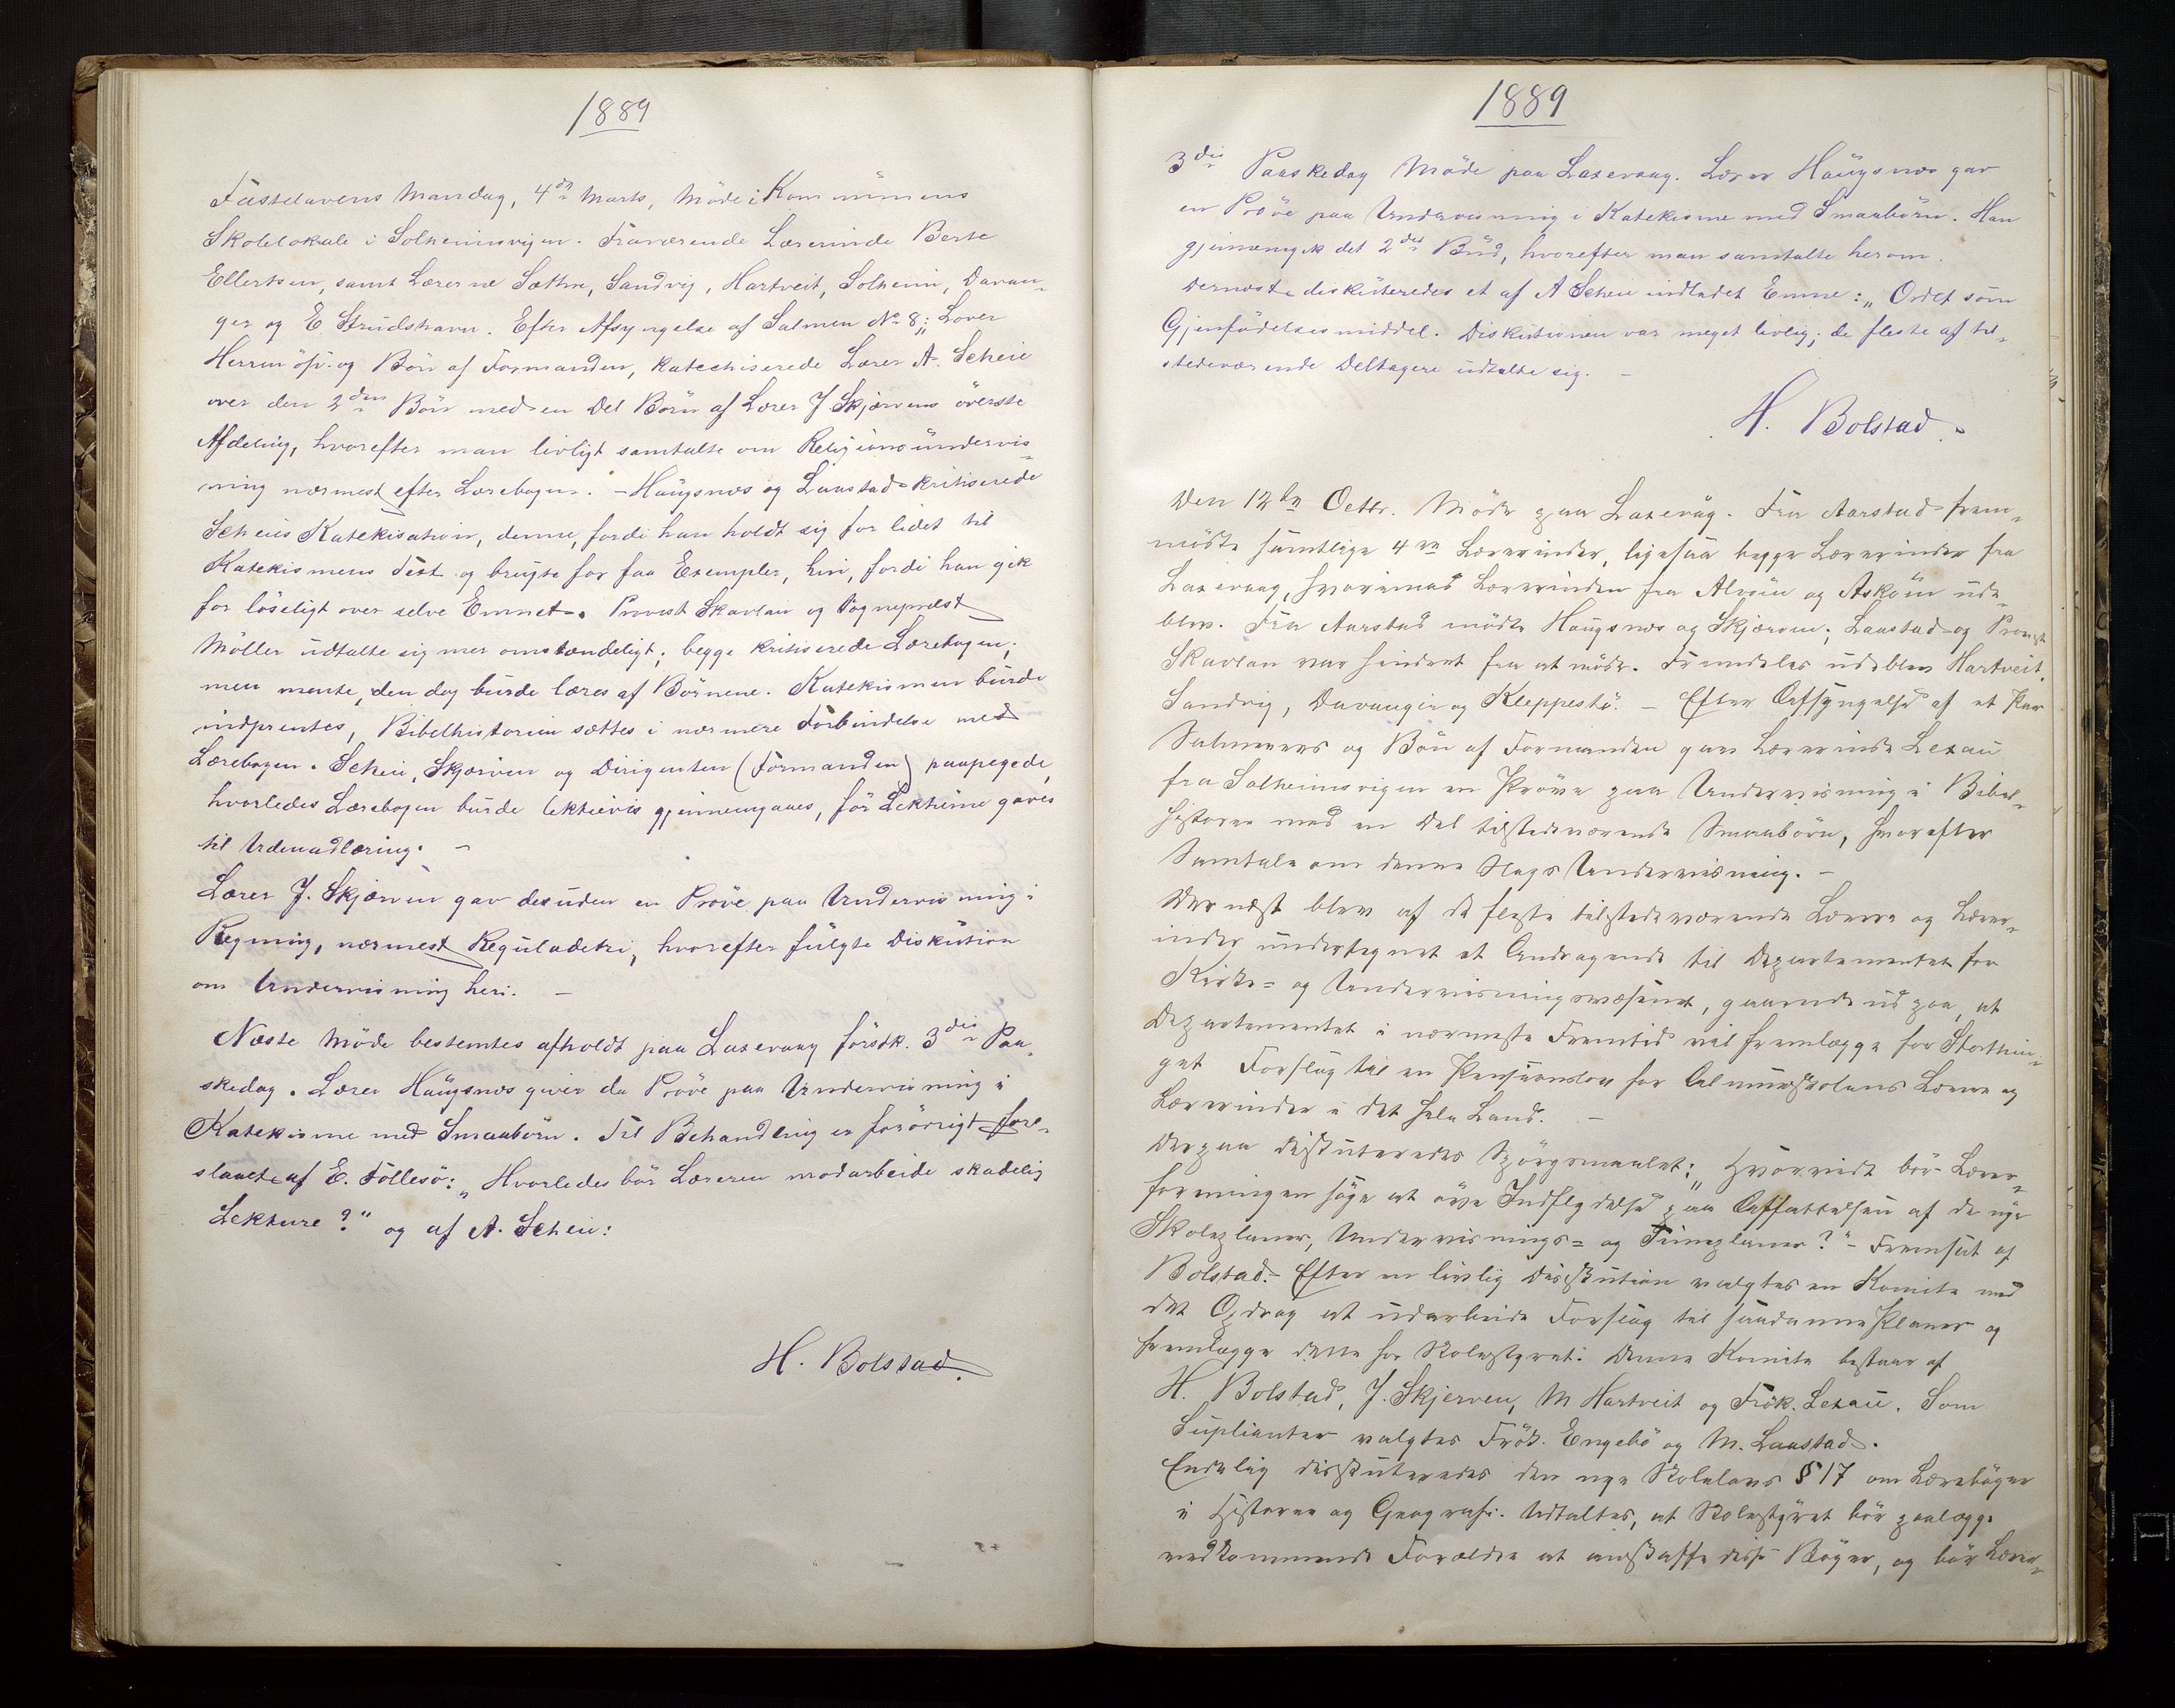 1889
Fastelavens Mandag, 4de Marts, Möde i Kommunens
Skolelokale i Solheimsvigen. Fraværende Lærerinde Berte
Ellertsen, samt Lærerne Sæthre, Sandvig, Hartveit, Solheim, Davan-
ger og E Strudshavn. Efter Afsyngelse af Salmen No 8: „Lover
Herren“ op. og Bön af Formanden, katechiserede Lærer A. Scheie
over den 2den Bön med en Del Börn af Lærer J. Skjærvens överste
Afdeling, hvorefter man livligt samtalte om Religionsundervis-
ning nærmest efter Lærebogen. – Haugsnæs og Laastad kritiserede
Scheies Katekisation, denne, fordi han holdt sig for lidet til
Katekismens Text og brugte for faa Exempler, hin, fordi han gik
for löseligt over selve Emnet. Provst Skavlan og Sogneprest
Möller udtalte sig mer omstændeligt; begge kritiserede Lærebogen;
men mente, den dog burde læres af Börnene. Katekismen burde
indprentes, Bibelhistorien sættes i nærmere Forbindelse med
Lærebogen. Scheie, Skjærven og Dirigenten (Formanden) paapegede,
hvorledes Lærebogen burde lektievis gjennemgaaes, för Lektierne gaves
til Udenadlæring. –
Lærer J. Skjærven gav desuden en Pröve paa Undervisning i
Regning, nærmest Reguladetri, hvorefter fulgte Diskution
om Undervisning heri. –
Næste Möde bestemtes afholdt paa Laxevaag förstk. 3die Paa-
skedag. Lærer Haugsnæs giver da Pröve paa Undervisning i
Katekisme med Smaabörn. Til Behandling er forövrigt fore-
slaaet af E. Föllesö: „Hvorledes bör Læreren modarbeide skadelig
Lekture?“ og af A. Scheie:
H. Bolstad.
1889
3die Paaskedag Möde paa Laxevaag. Lærer Haugsnæs gav
en Pröve paa Undervisning i Katekisme med Smaabörn. Han
gjennemgik det 2det Bud, hvorefter man samtalte herom.
Dernæst diskuteredes et af A Scheie indladet Emne: „Ordet som
Gjenfödelsesmiddel. Diskutionen var meget livlig; de fleste af til-
stedeværende Deltagere udtalte sig. –
H. Bolstad.
Den 12te Octbr. Möde paa Laxevåg. Fra Aarstad frem-
mödte samtlige 4re Lærerinder, ligesaa begge Lærerinder fra
Laxevaag, hvorimod Lærerinden fra Alvöen og Asköen ude-
blev. Fra Aarstad mödte Haugsnæs og Skjærven; Laastad og Provst
Skavlan var hindret fra at möde. Fremdeles udeblev Hartveit,
Sandvig, Davanger og Kleppestö. – Efter Afsyngelse af et Par
Salmevers og Bön af Formanden gav Lærerinde Lexau
fra Solheimsvigen en Pröve paa Undervisning i Bibel-
historie med en Del tilstedeværende Smaabörn, hvorefter
Samtale om denne Slags Undervisning. –
Dernæst blev af de fleste tilstedeværende Lærere og Lærer-
inder undertegnet et Andragende til Departementet for
Kirke- og Undervisningsvæsenet, gaaende ud paa, at
Departementet i nærmeste Fremtid vil fremlægge for Storthin-
get Forslag til en Pensionslov for Almueskolens Lærere og
Lærerinder i det hele Land. –
Derpaa diskuteredes Spörgsmaalet: „Hvorvidt bör Lærer-
foreningen söge at öve Indflydelse paa Affattelsen af de nye
Skoleplaner, Undervisnings- og Timeplaner?“ – Fremsat af
Bolstad. – Efter en livlig Diskution valgtes en Komite med
det Opdrag at udarbeide Forslag til saadanne Planer og
fremlægge dette for Skolestyret. Denne Komite bestaar af
H. Bolstad, J. Skjerven, M Hartveit og Frök. Lexau. Som
Suplianter valgtes Frök. Engebö og M. Laastad.
Endelig diskuteredes den nye Skolelovs § 17 om Læreböger
i Historie og Geografi. Udtaltes, at Skolestyret bör paalægge
vedkommende Forældre at anskaffe disse Böger, og bör Lærer-